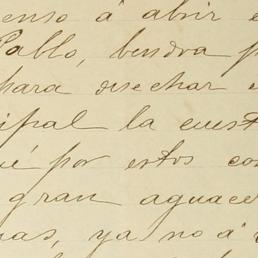 enso á abrir e
Pablo, bendra p
para desechar e
ipal la cuest
ué por estos con
gran aguace
nas, ya no á